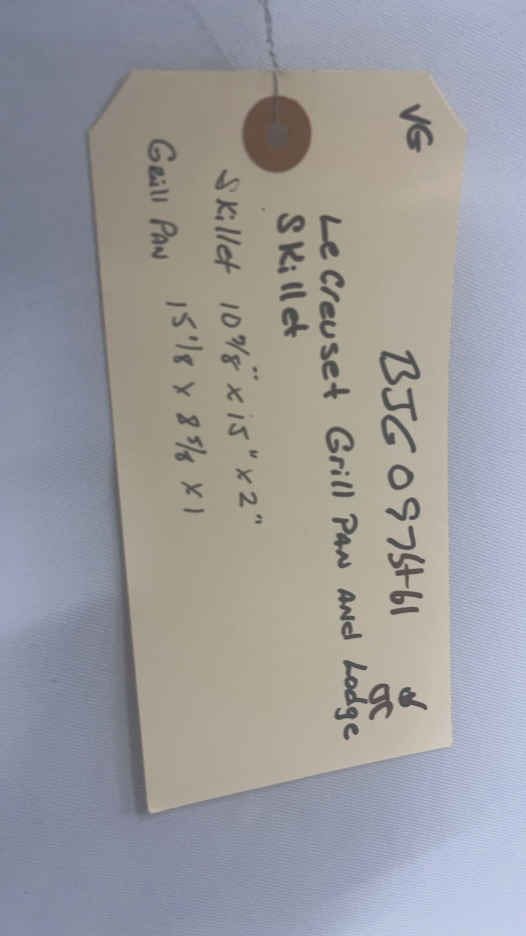 VG
BJG 0975t61
JC
Le Creuset Grill Pan and Lodge
Skillet
Skillet 10 7/8" x 15" x 2"
Grill Pan 15 1/8 x 8 5/8 x 1